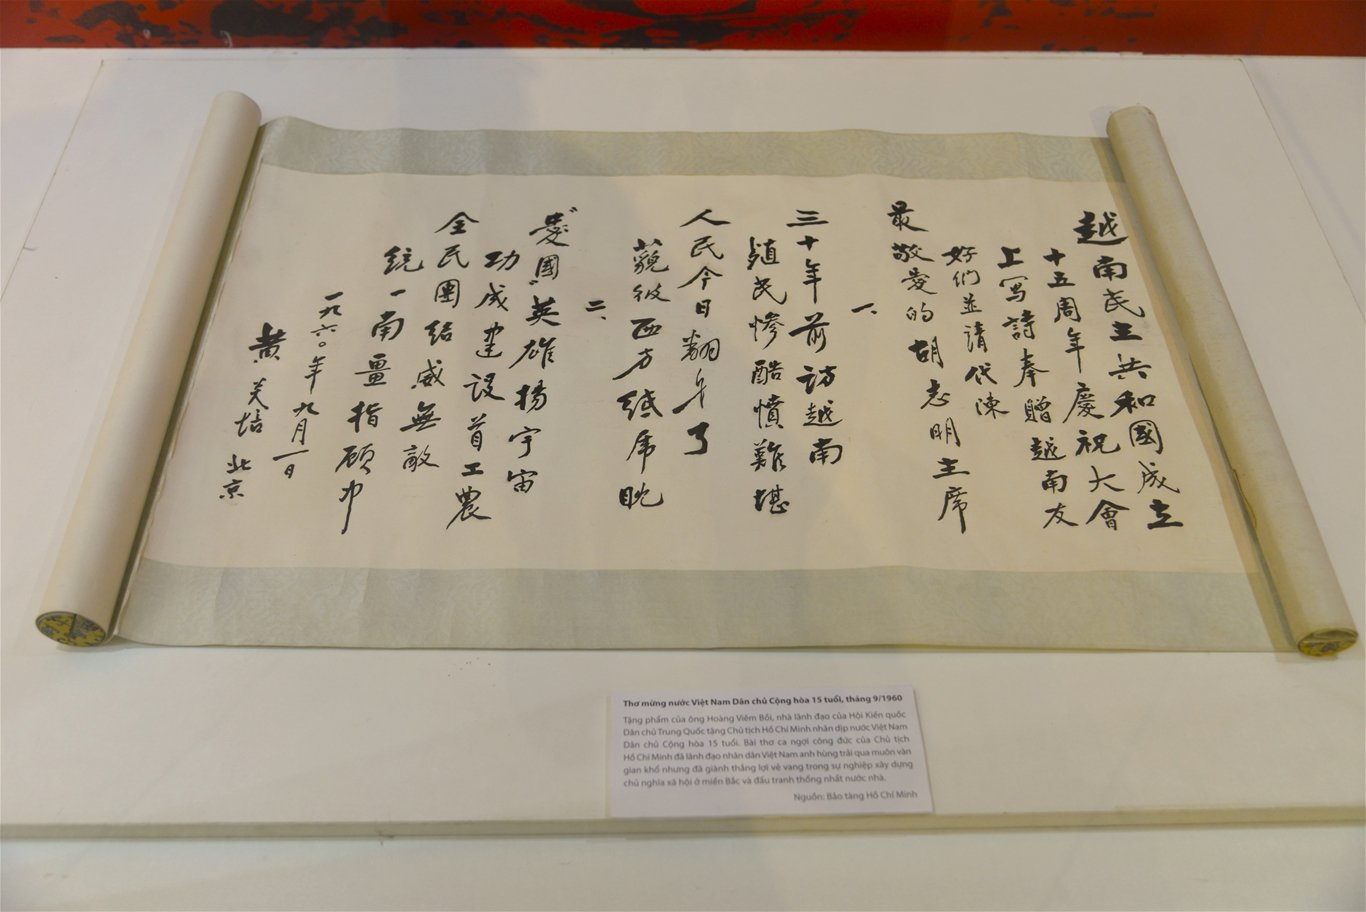 越南民主共和國成立
十五周年慶祝大會
上寫詩奉贈越南友
好們並請代陳
最敬愛的胡志明主席
一、
三十年前訪越南
殖民慘酷憤難堪
人民今日翻身了
藐彼西方紙虎眈
二、
"愛國"英雄揚宇宙
功成建設首工農
全民團結威無敵
統一南畺指顧中
一九六〇年九月一日
黃炎培 北京
Thơ mừng nước Việt Nam Dân chủ Cộng hòa 15 tuổi, tháng 9/1960
Tặng phẩm của ông Hoàng Viêm Bồi, nhà lãnh đạo của Hội Kiến quốc
Dân chủ Trung Quốc tặng Chủ tịch Hồ Chí Minh nhân dịp nước Việt Nam
Dân chủ Cộng hòa 15 tuổi. Bài thơ ca ngợi công đức của Chủ tịch
Hồ Chí Minh đã lãnh đạo nhân dân Việt Nam anh hùng trải qua muôn vàn
gian khổ nhưng đã giành thắng lợi vẻ vang trong sự nghiệp xây dựng
chủ nghĩa xã hội ở miền Bắc và đấu tranh thống nhất nước nhà.
Nguồn: Bảo tàng Hồ Chí Minh